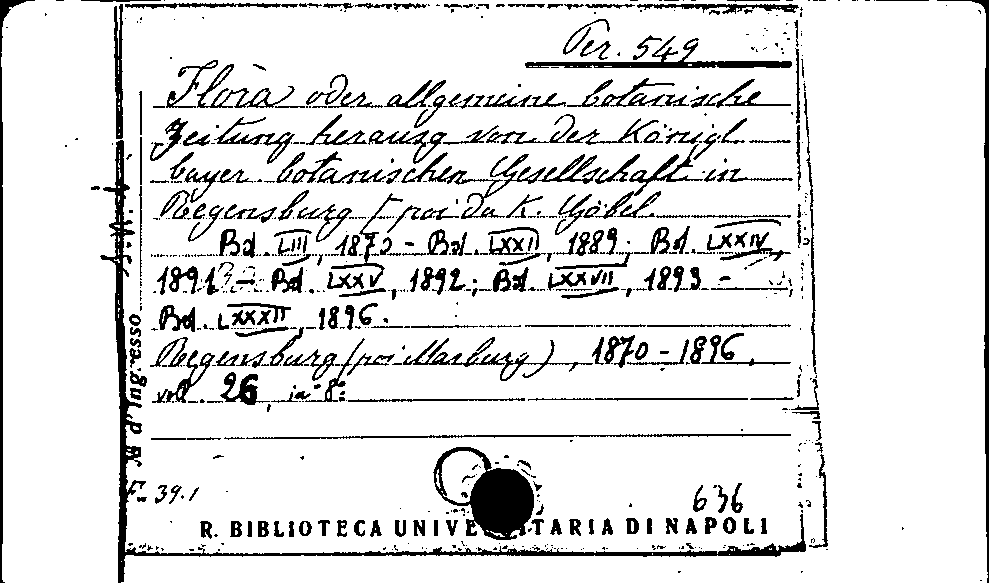 Per. 549
Flora oder allgemeine botanische
Zeitung herausg von der Königl.
bayer. botanischen Gesellschaft in
Regensburg [poi da K. Göbel.
Bd. LIII, 1870 - Bd. LXXII, 1889; Bd. LXXIV,
1891 - Bd. LXXV, 1892; Bd. LXXVII, 1893 -
Bd. LXXXII, 1896.
Regensburg (poi Marburg), 1870-1896.
vol. 26, in-8°
F. 39.1
636
R. BIBLIOTECA UNIVE TARIA DI NAPOLI